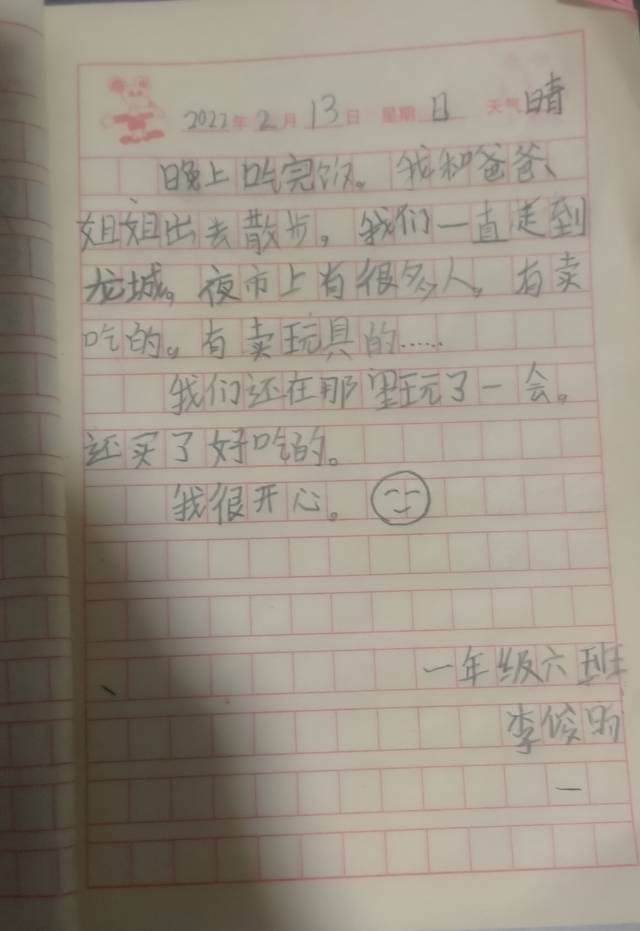 2022年2月13日 星期日 天气晴
晚上吃完饭。我和爸爸、
姐姐出去散步。我们一直走到
龙城。夜市上有很多人。有卖
吃的。有卖玩具的……
我们还在那里玩了一会。
还买了好吃的。
我很开心。
一年级六班
李俊